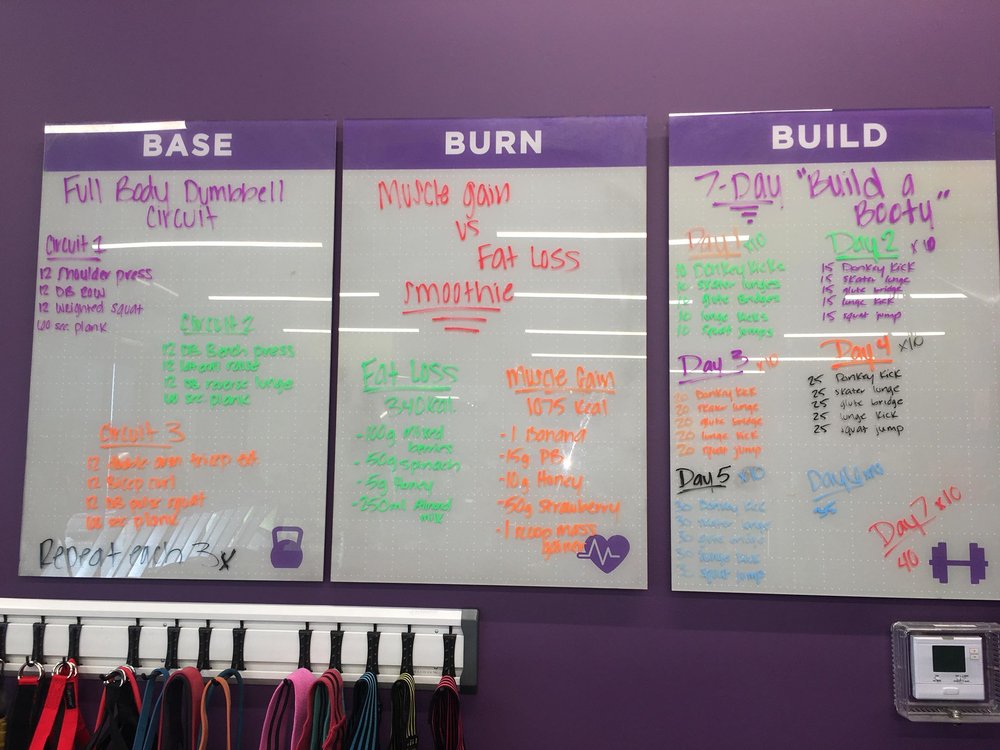 BASE
Full Body Dumbbell
Circuit
Circuit 1
12 shoulder press
12 DB Row
12 Weighted squat
60 sec plank
Circuit 2
12 DB Bench press
12 lateral raise
12 DB reverse lunges
60 sec plank
Circuit 3
12 arm tricep ext
12 bicep curl
12 DB pulse squat
60 sec plank
Repeat each 3x
BURN
Muscle gain
vs
Fat Loss
smoothie
Fat Loss
340kcal
-100g mixed
berries
-50g spinach
-5g Honey
-250ml Almond
milk
Muscle Gain
1075 kcal
-1 Banana
-15g PB
-10g Honey
-50g Strawberry
-1 scoop mass
gainer
BUILD
7-Day "Build a
Booty"
Day 1 x10
10 Donkey Kicks
10 skater lunges
10 glute Bridges
10 lunge kicks
10 squat jumps
Day 2 x10
15 Donkey Kick
15 skater lunge
15 glute bridge
15 lunge kick
15 squat jump
Day 3 x10
20 Donkey Kick
20 skater lunge
20 glute bridge
20 lunge kick
20 squat jump
Day 4 x10
25 Donkey Kick
25 skater lunge
25 glute bridge
25 lunge kick
25 squat jump
Day 5 x10
30 Donkey Kick
30 skater lunge
30 glute bridge
30 lunge kick
squat jump
Day 6
35
Day 7 x10
40